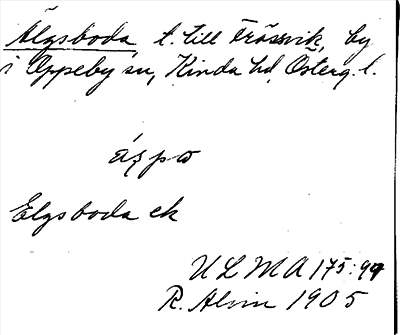 Älgsboda, t. till Trässvik, by
i Oppeby sn, Kinda hd, Österg. l.
Elgsboda ek
ULMA 175:99
R. Alvin 1905